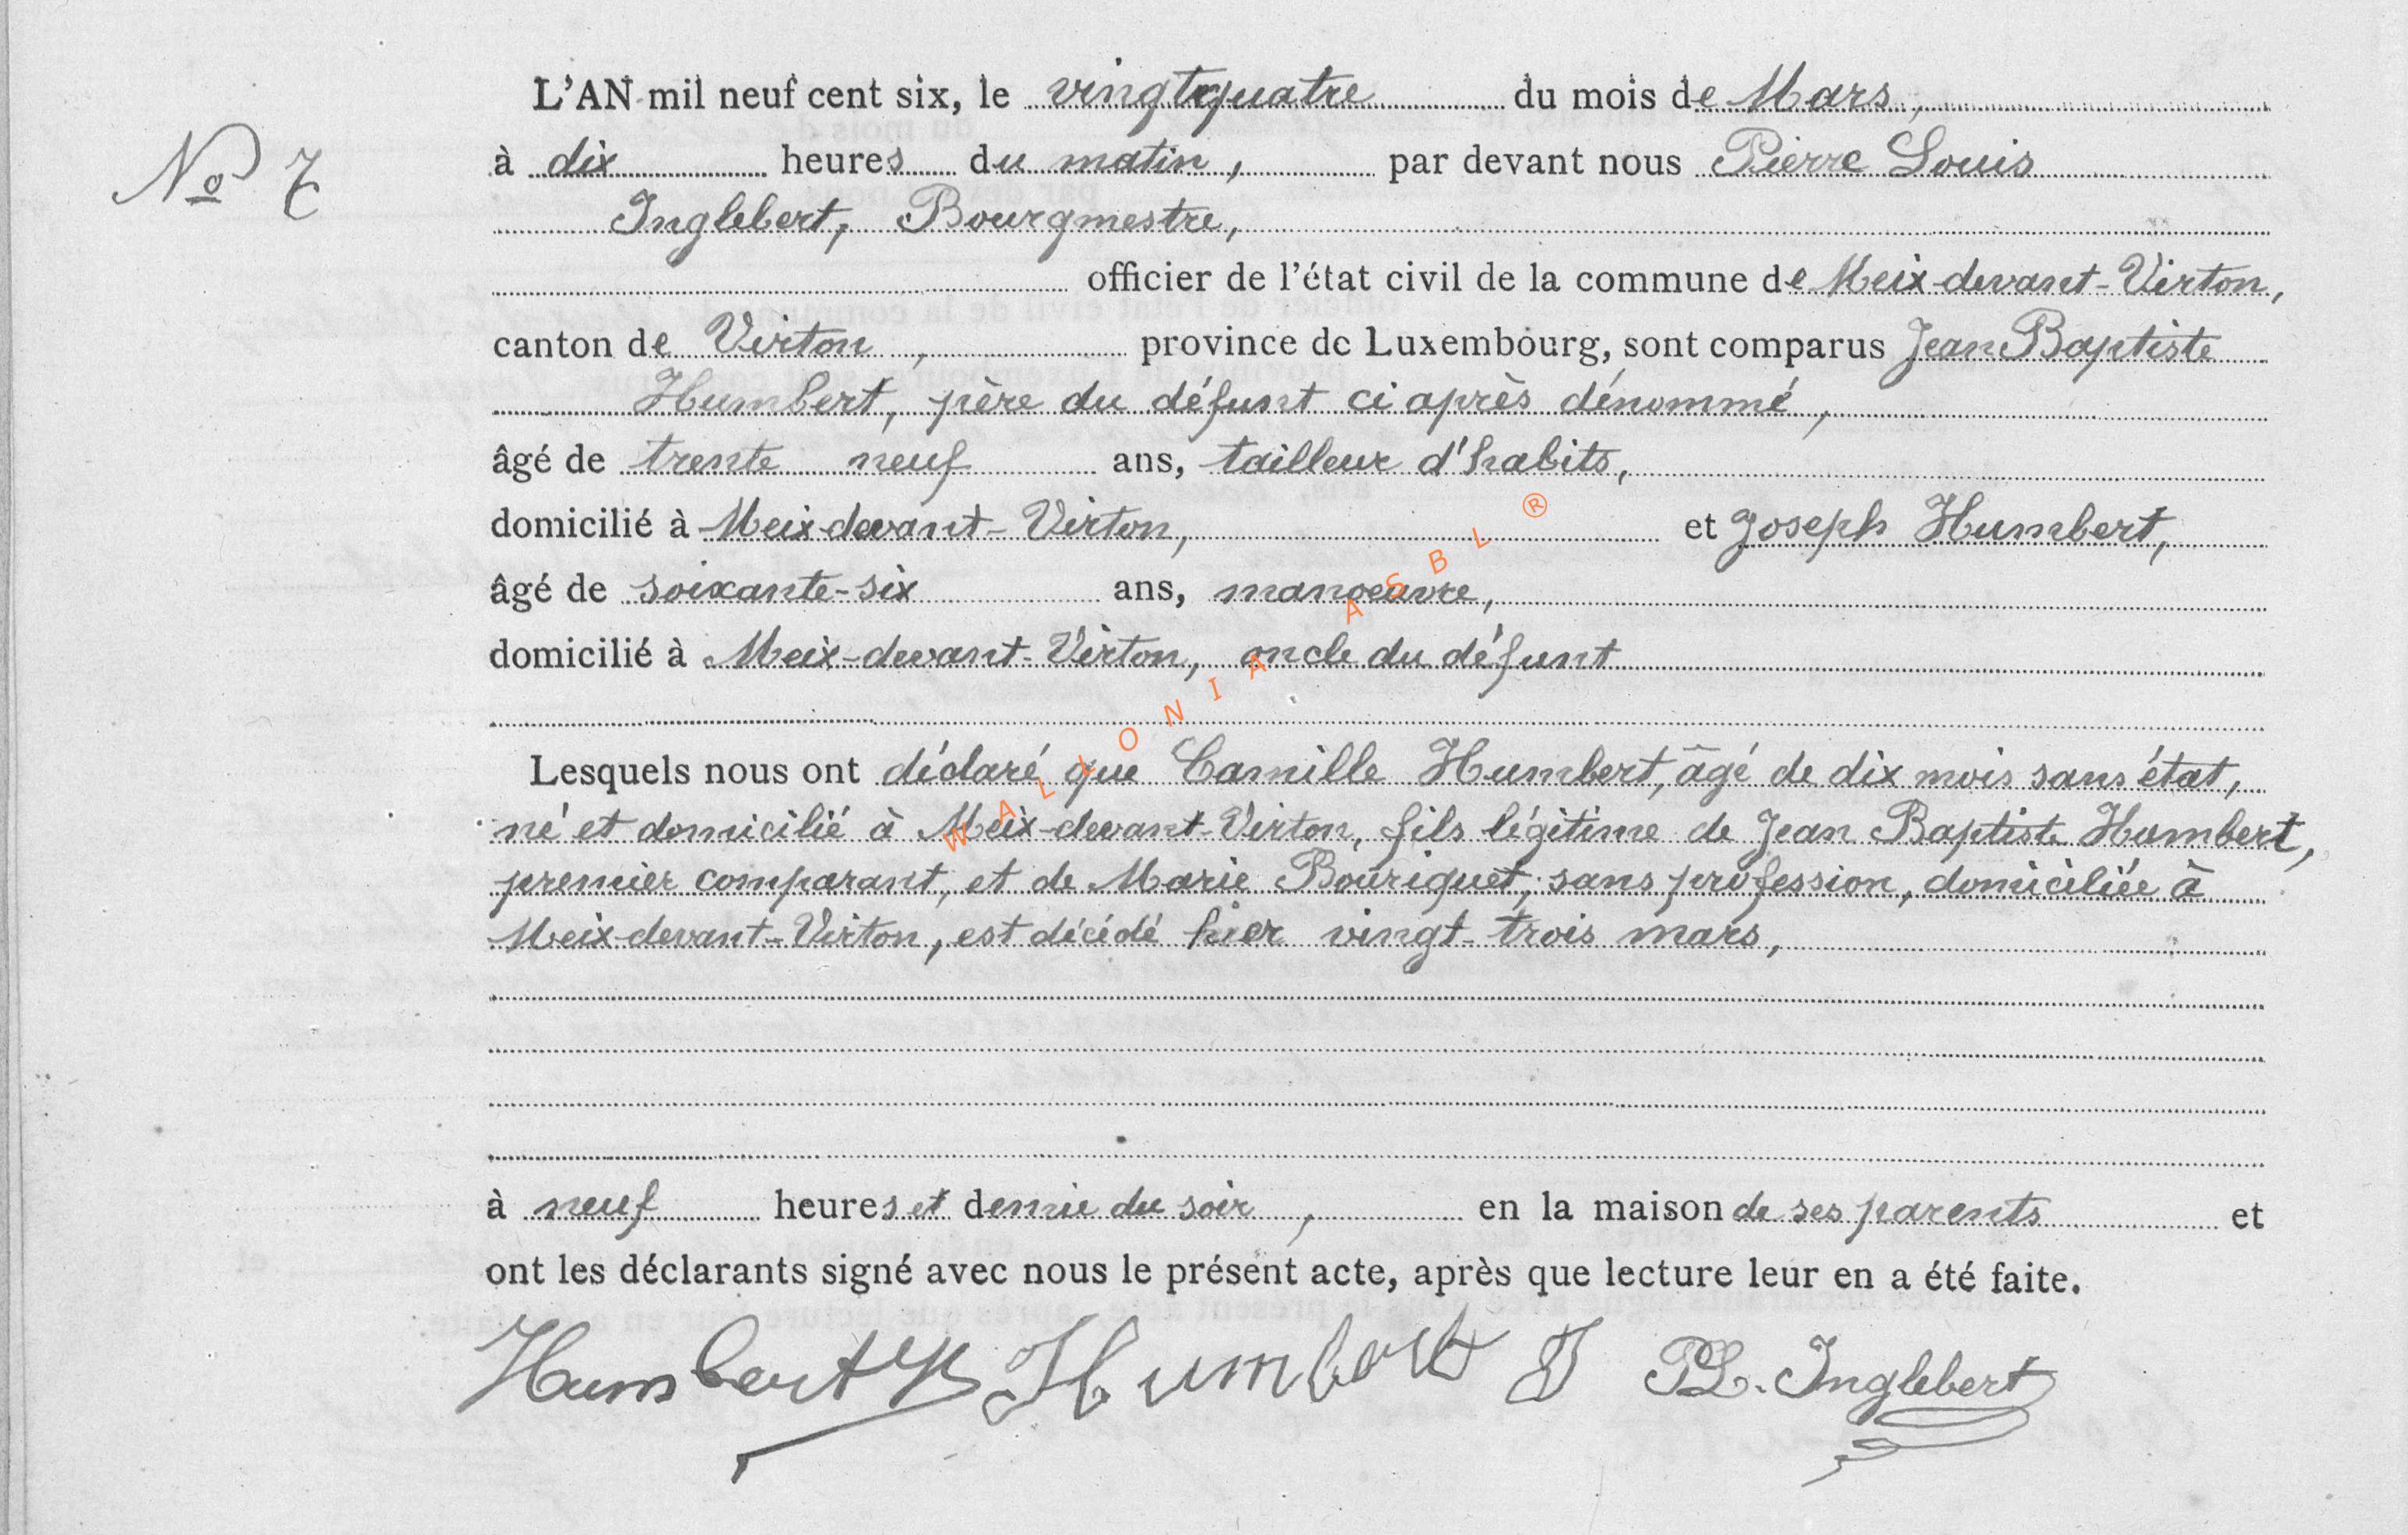 L'AN mil neuf cent six, le vingt quatre du mois de Mars,
No 7
à dix heures du matin, par devant nous Pierre Louis
Inglebert, Bourgmestre,
officier de l'état civil de la commune de Meix-devant-Virton,
canton de Virton, province de Luxembourg, sont comparus Jean Baptiste
Humbert, père du défunt ci après dénommé,
âgé de trente neuf ans, tailleur d'habits,
domicilié à Meix-devant-Virton, et Joseph Humbert,
âgé de soixante-six ans, manoeuvre,
domicilié à Meix-devant-Virton, oncle du défunt
Lesquels nous ont déclaré que Camille Humbert, âgé de dix mois sans état,
né et domicilié à Meix-devant-Virton, fils légitime de Jean Baptiste Humbert,
premier comparant, et de Marie Bouriquet, sans profession, domiciliée à
Meix-devant-Virton, est décédé hier vingt-trois mars,
à neuf heures et demie du soir, en la maison de ses parents et
ont les déclarants signé avec nous le présent acte, après que lecture leur en a été faite.
Humbert Humbert J PL. Inglebert
WALLONIA ASBL ®